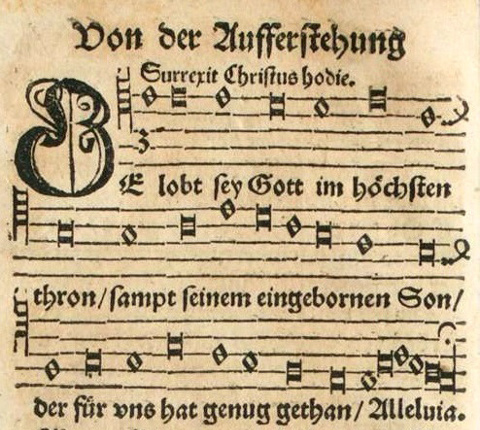 Von der Aufferſtehung
Surrexit Chriſtus hodie.
3
GE lobt ſey Gott im höchſten
thron/ſampt ſeinem eingebornen Son/
der für vns hat genug gethan/ Alleluia.